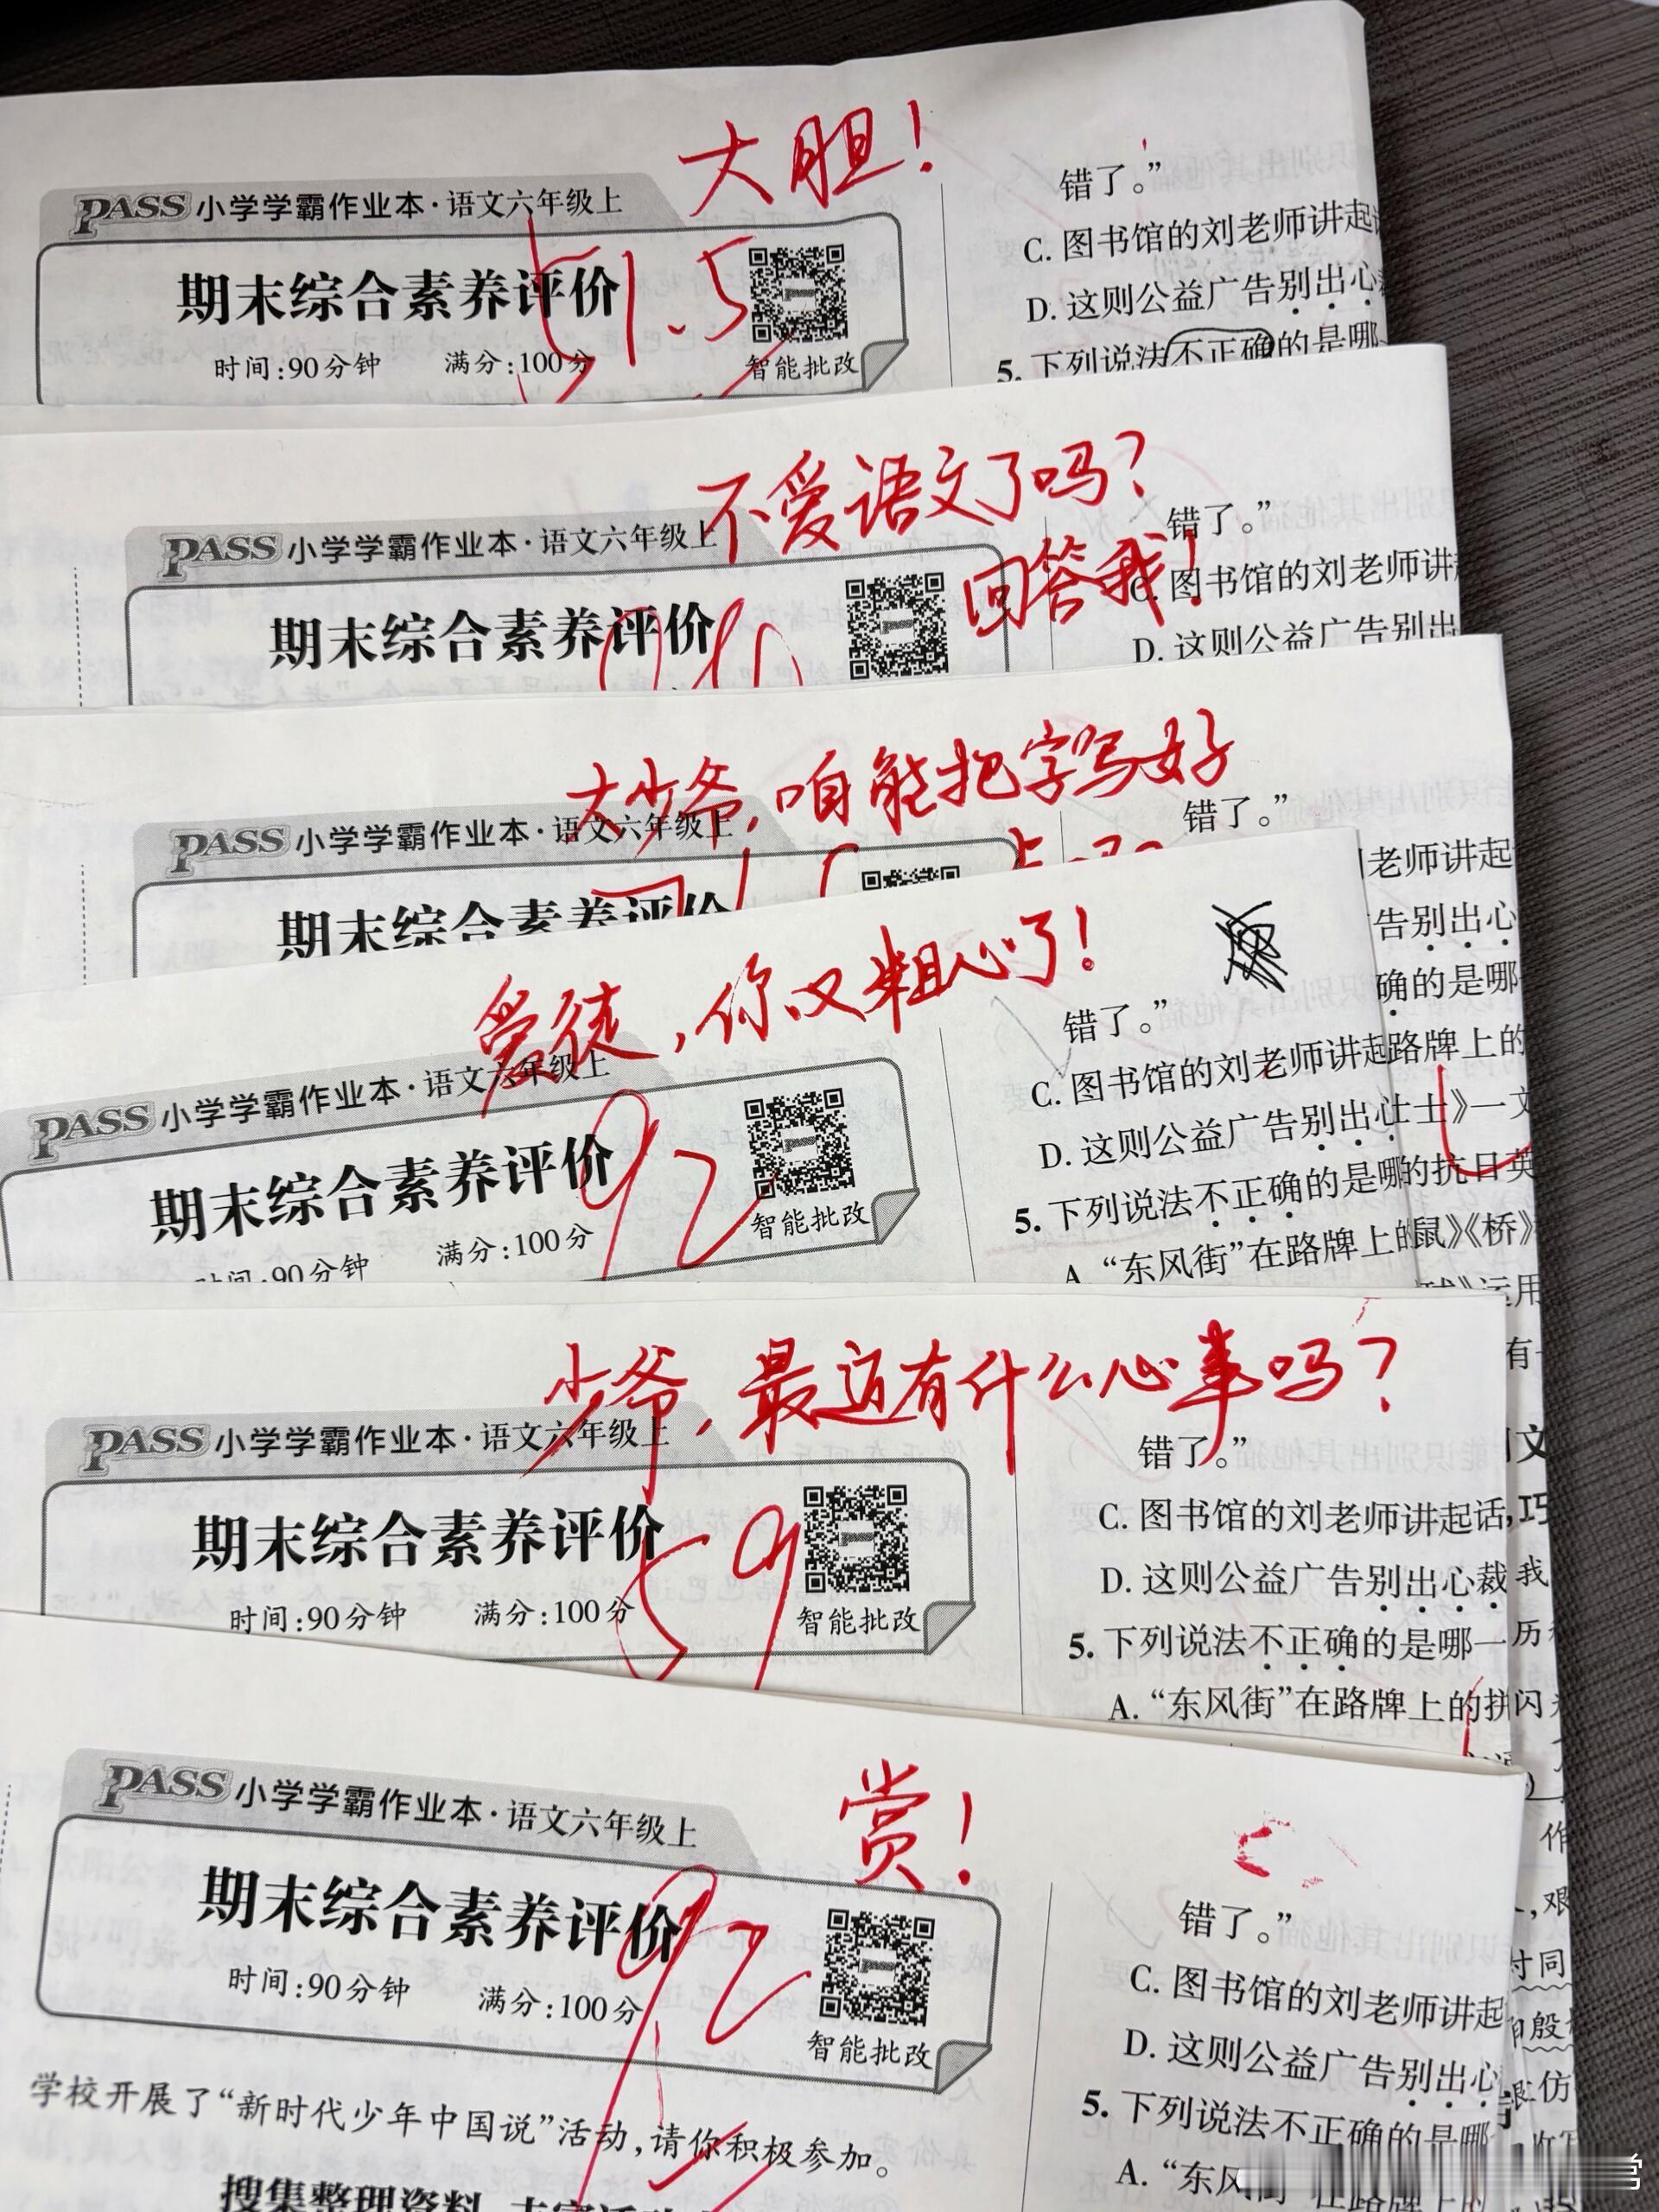 大胆！
PASS 小学学霸作业本·语文六年级上
期末综合素养评价
51.5
时间:90分钟 满分:100分
智能批改
错了。”
C. 图书馆的刘老师讲起
D. 这则公益广告别出心
5. 下列说法不正确的是哪
不爱语文了吗？
回答我！
PASS 小学学霸作业本·语文六年级上
期末综合素养评价
错了。”
C. 图书馆的刘老师讲
D. 这则公益广告别出
大少爷，咱能把字写好
PASS 小学学霸作业本·语文六年级上
期末综合素养评价
错了。”
老师讲起
告别出心
确的是哪
路牌上的
士》一文
的抗日英
鼠》《桥》
运用
有
爱徒，你又粗心了！
PASS 小学学霸作业本·语文六年级上
期末综合素养评价
92
时间:90分钟 满分:100分
智能批改
错了。”
C. 图书馆的刘老师讲起
D. 这则公益广告别出心
5. 下列说法不正确的是哪
A. “东风街”在路牌上的
少爷，最近有什么心事吗？
PASS 小学学霸作业本·语文六年级上
期末综合素养评价
59
时间:90分钟 满分:100分
智能批改
错了。”
C. 图书馆的刘老师讲起话,
D. 这则公益广告别出心裁
5. 下列说法不正确的是哪一
A. “东风街”在路牌上的拼
赏！
PASS 小学学霸作业本·语文六年级上
期末综合素养评价
92
时间:90分钟 满分:100分
智能批改
学校开展了“新时代少年中国说”活动,请你积极参加。
搜集整理资料
错了。”
C. 图书馆的刘老师讲起
D. 这则公益广告别出心
5. 下列说法不正确的是哪
A. “东风